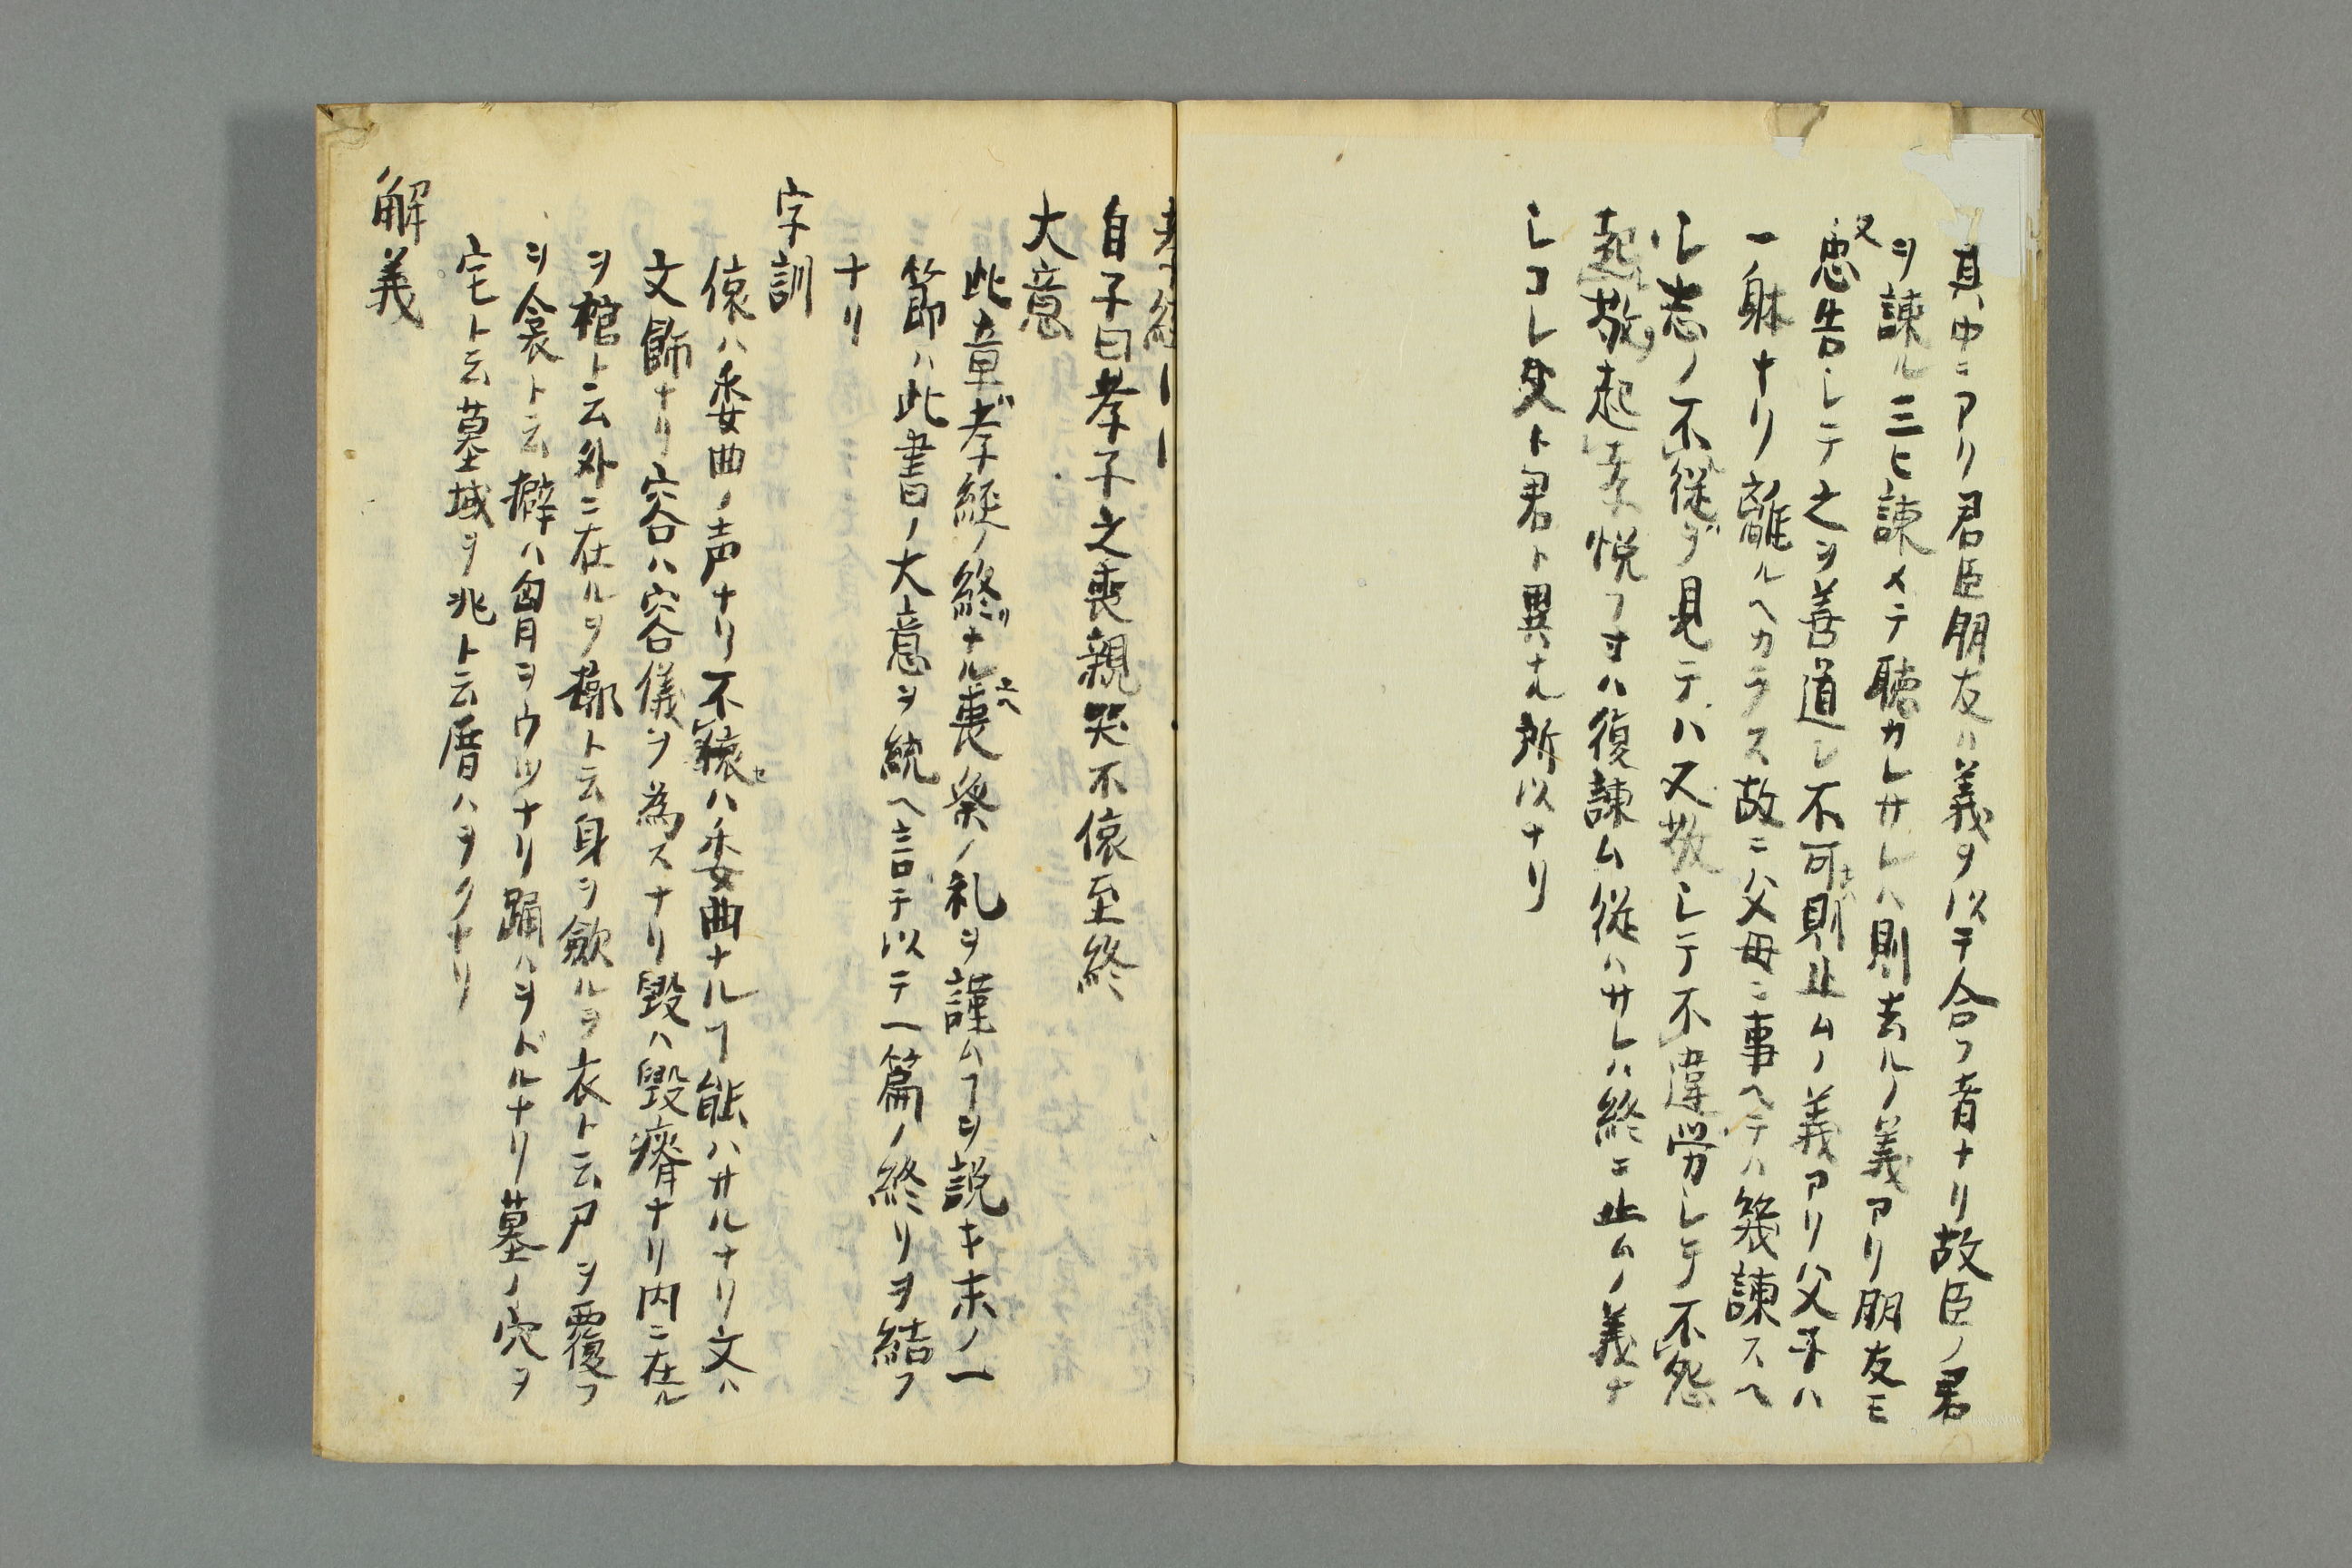 其中ニアリ君臣朋友ハ義ヲ以テ合フ者ナリ故臣ノ君
ヲ諌ル三ヒ諌メテ聴カレサレハ則去ルノ義アリ朋友モ
又忠告シテ之ヲ善道シ不可則止ムノ義アリ父子ハ
一躰ナリ離ルヘカラス故ニ父母ニ事ヘテハ幾諌スヘ
シ志ノ不従ヲ見テハ又敬シテ不違労シテ不怨
起敬起孝悦フ寸ハ復諌ム従ハサレハ終ニ止ムノ義ナ
シコレ父ト君ト異ナル所以ナリ
孝子経
自子曰孝子之喪親哭不偯至終
大意
此章孝経ノ終ナル故喪祭ノ礼ヲ謹ムヿヲ説キ末ノ一
節ハ此書ノ大意ヲ統ヘ言テ以テ一篇ノ終リヲ結フ
ナリ
字訓
偯ハ委曲ノ声ナリ不偯ハ委曲ナルヿ能ハサルナリ文ハ
文飾ナリ容ハ容儀ヲ為スナリ毀ハ毀瘠ナリ内ニ在ル
ヲ棺ト云外ニ在ルヲ槨ト云身ヲ歛ルヲ衣ト云尸ヲ覆フ
ヲ衾ト云擗ハ胸ヲウツナリ踊ハヲドルナリ墓ノ穴ヲ
宅ト云墓域ヲ兆ト云厝ハヲクナリ
解義